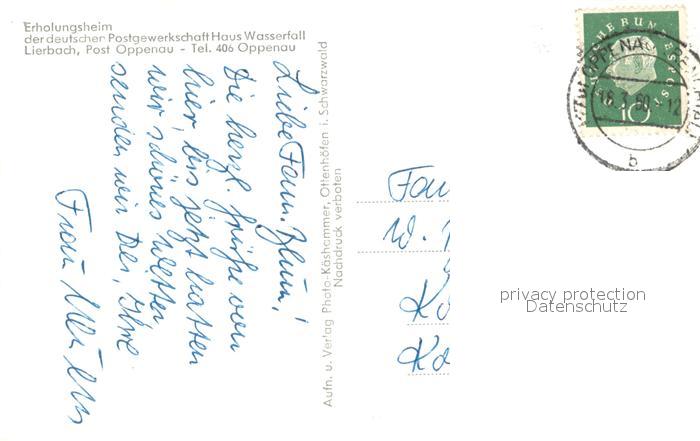 Erholungsheim
der deutschen Postgewerkschaft Haus Wasserfall
Lierbach, Post Oppenau - Tel. 406 Oppenau
Liebe Fam. Blum!
Die herzl. Grüße von
hier, bis jetzt hatten
wir schönes Wetter
senden wir Dir, Ihre
Frau
Aufn. u. Verlag Photo-Käshammer, Ottenhöfen i. Schwarzwald
Nachdruck verboten
DEUTSCHE BUNDESPOST
10
OPPENAU
18.3.60 - 12
b
Fam
W.
privacy protection
Datenschutz